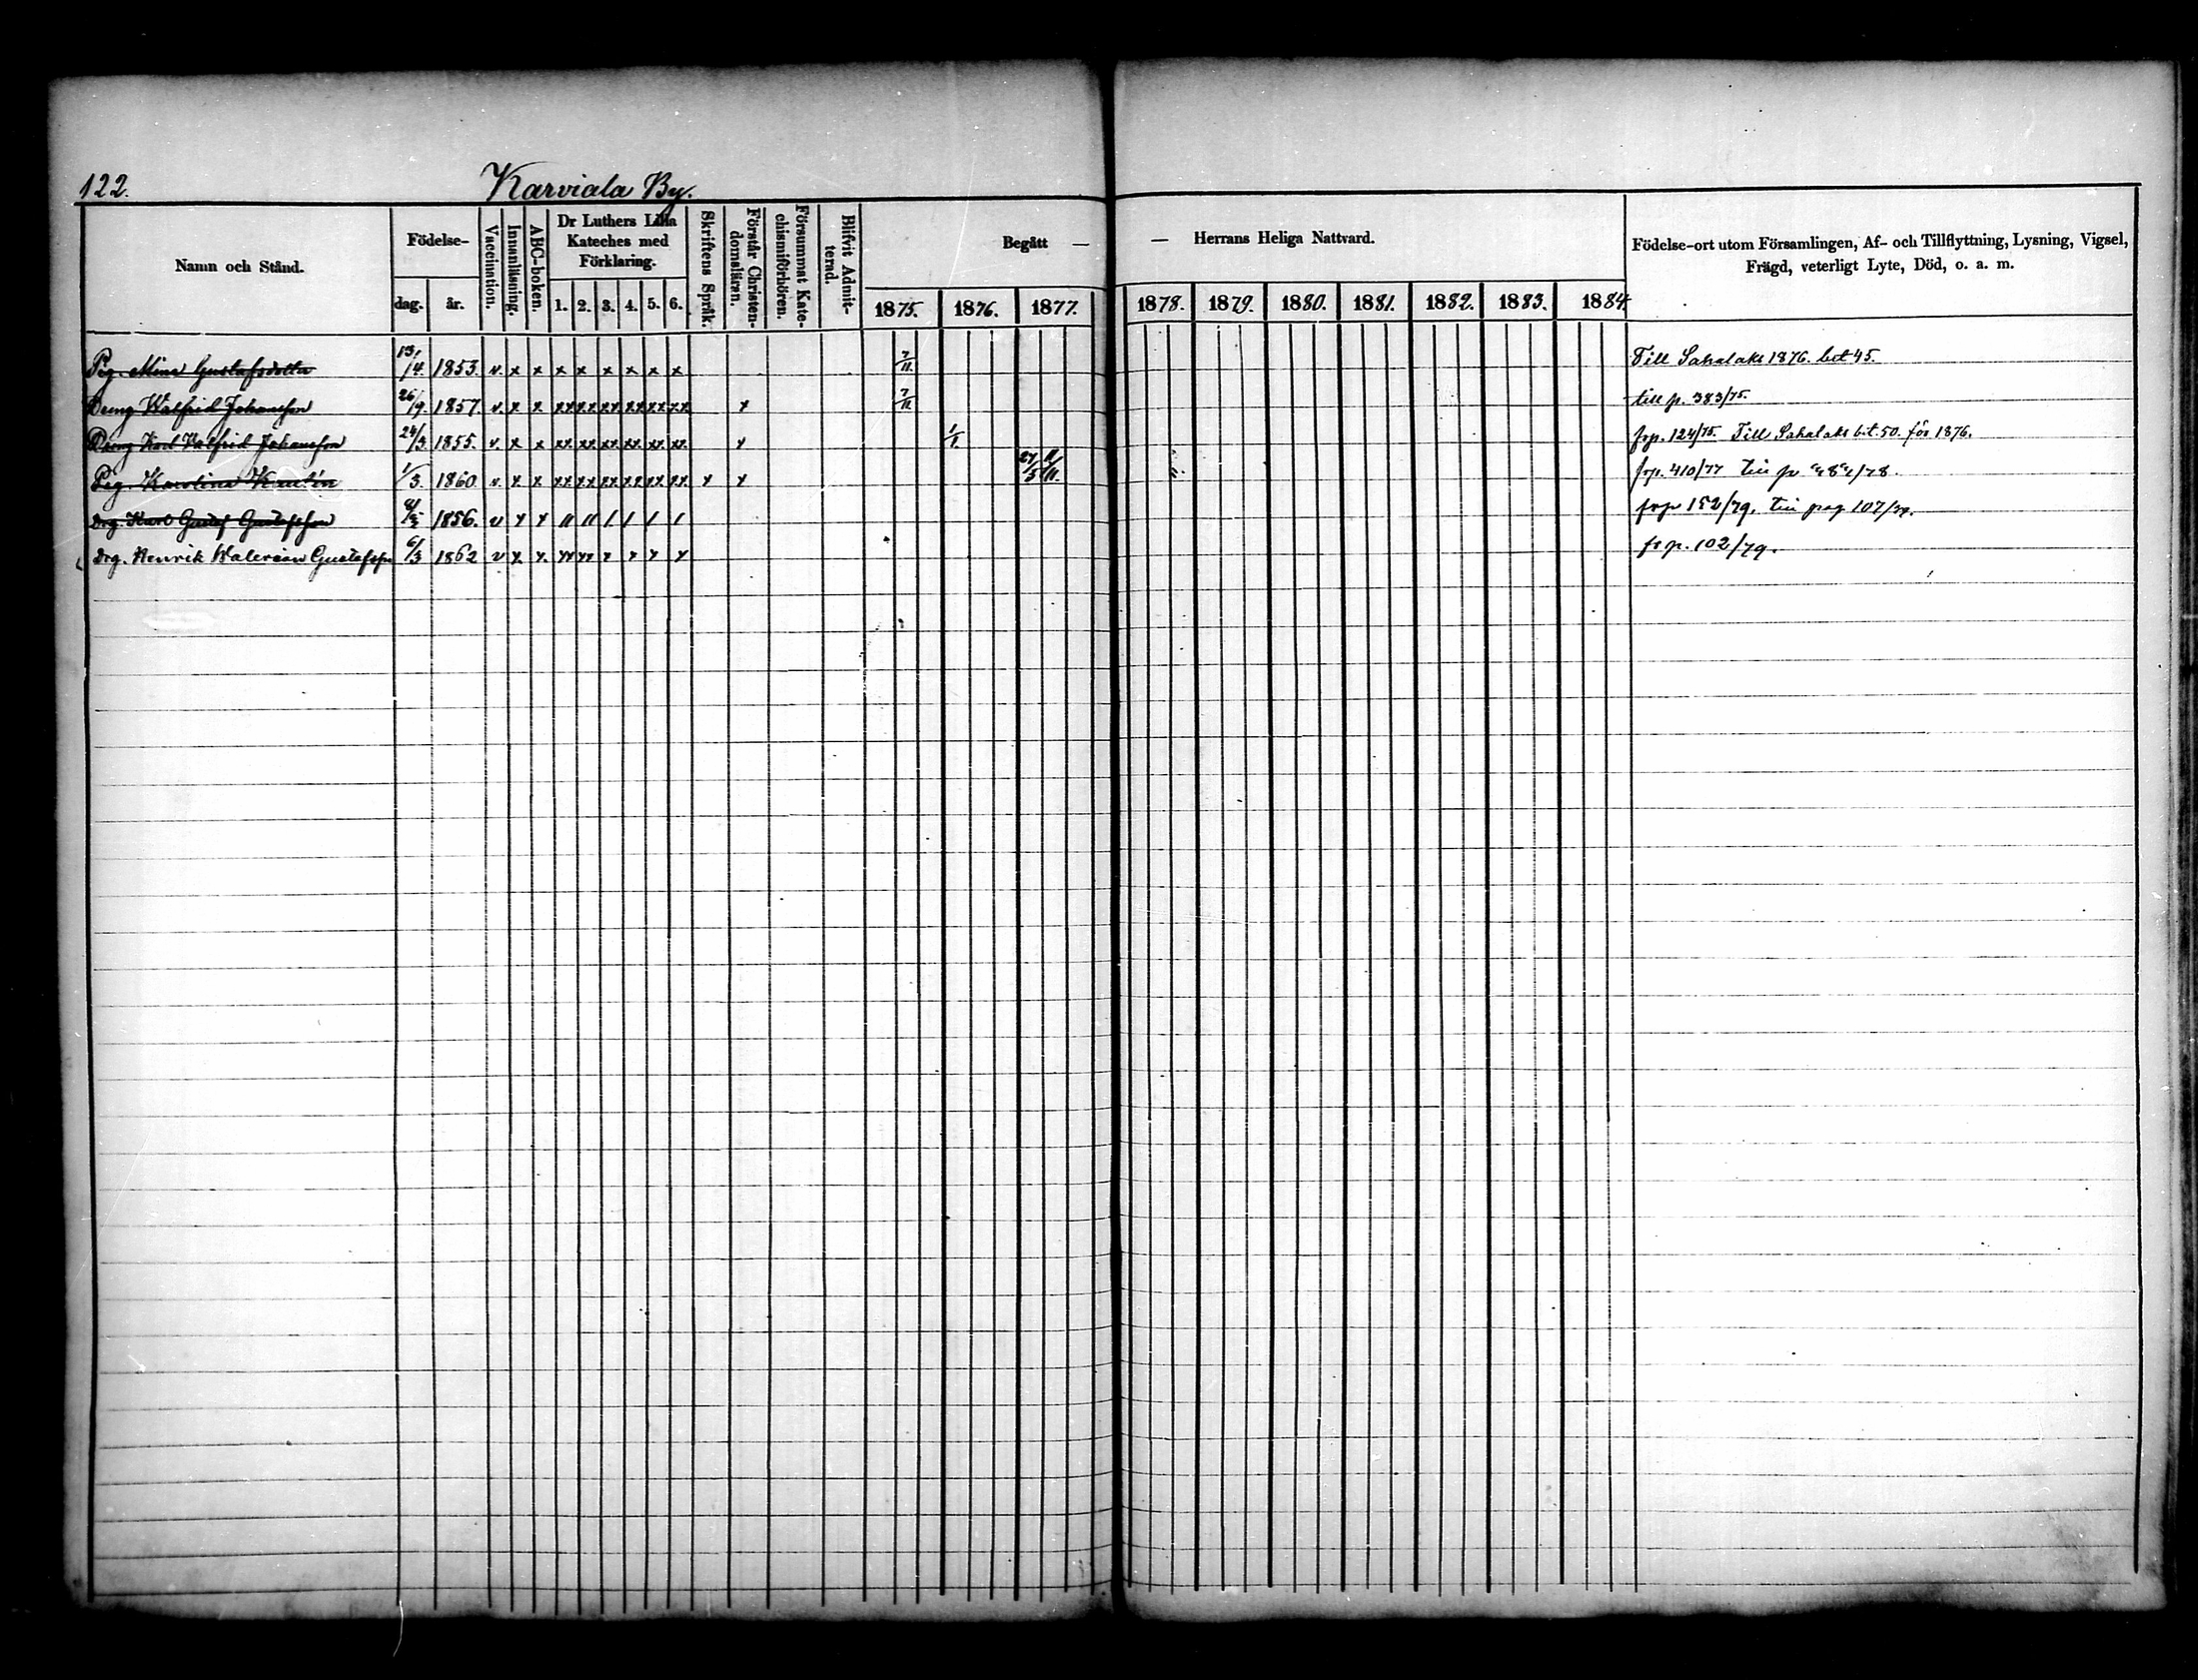 122.
Karviala By.
Namn och Stånd.
Födelse-
dag.
år.
Vaccination.
Innanläsning.
ABC-boken.
Dr Luthers Lilla
Kateches med
Förklaring.
1. 2. 3. 4. 5. 6.
Skriftens Språk.
Förstår Christen-
domsläran.
Försummat Kate-
chismiförhören.
Blifvit Admit-
terad.
Begått —
— Herrans Heliga Nattvard.
1875. 1876. 1877. 1878. 1879. 1880. 1881. 1882. 1883. 1884
Födelse-ort utom Församlingen, Af- och Tillflyttning, Lysning, Vigsel,
Frägd, veterligt Lyte, Död, o. a. m.
Pig. Mina Gustafsdotter 13/4. 1853. v. x x x x x x x x 7/11. Till Sahalaks 1876. bet 45.
Dreng Walfrid Johansson 26/9. 1857. v. x x xx xx xx xx xx xx x 7/11. till p. 383/75.
Dreng Karl Walfrid Johansson 24/3. 1855. v. x x xx xx xx xx xx xx x 1/1. frp. 124/75. Till Sahalaks bit. 50. för 1876.
Pig. Karolina 1/3. 1860 v. x x xx xx xx xx xx xx x x 27/5 11/11. frp. 410/77
Drg. Karl Gustaf Gustafsson 1856. v x x 11 11 1 1 1 1 frp 152/79. pag 107
Drg. Henrik Walerian Gustafsson 6/3 1862 v x x. xx xx x x x x frp. 102/79.